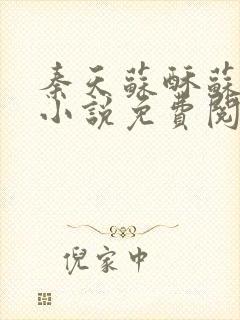 秦天蘇酥蘇
小說免費閱
倪家中